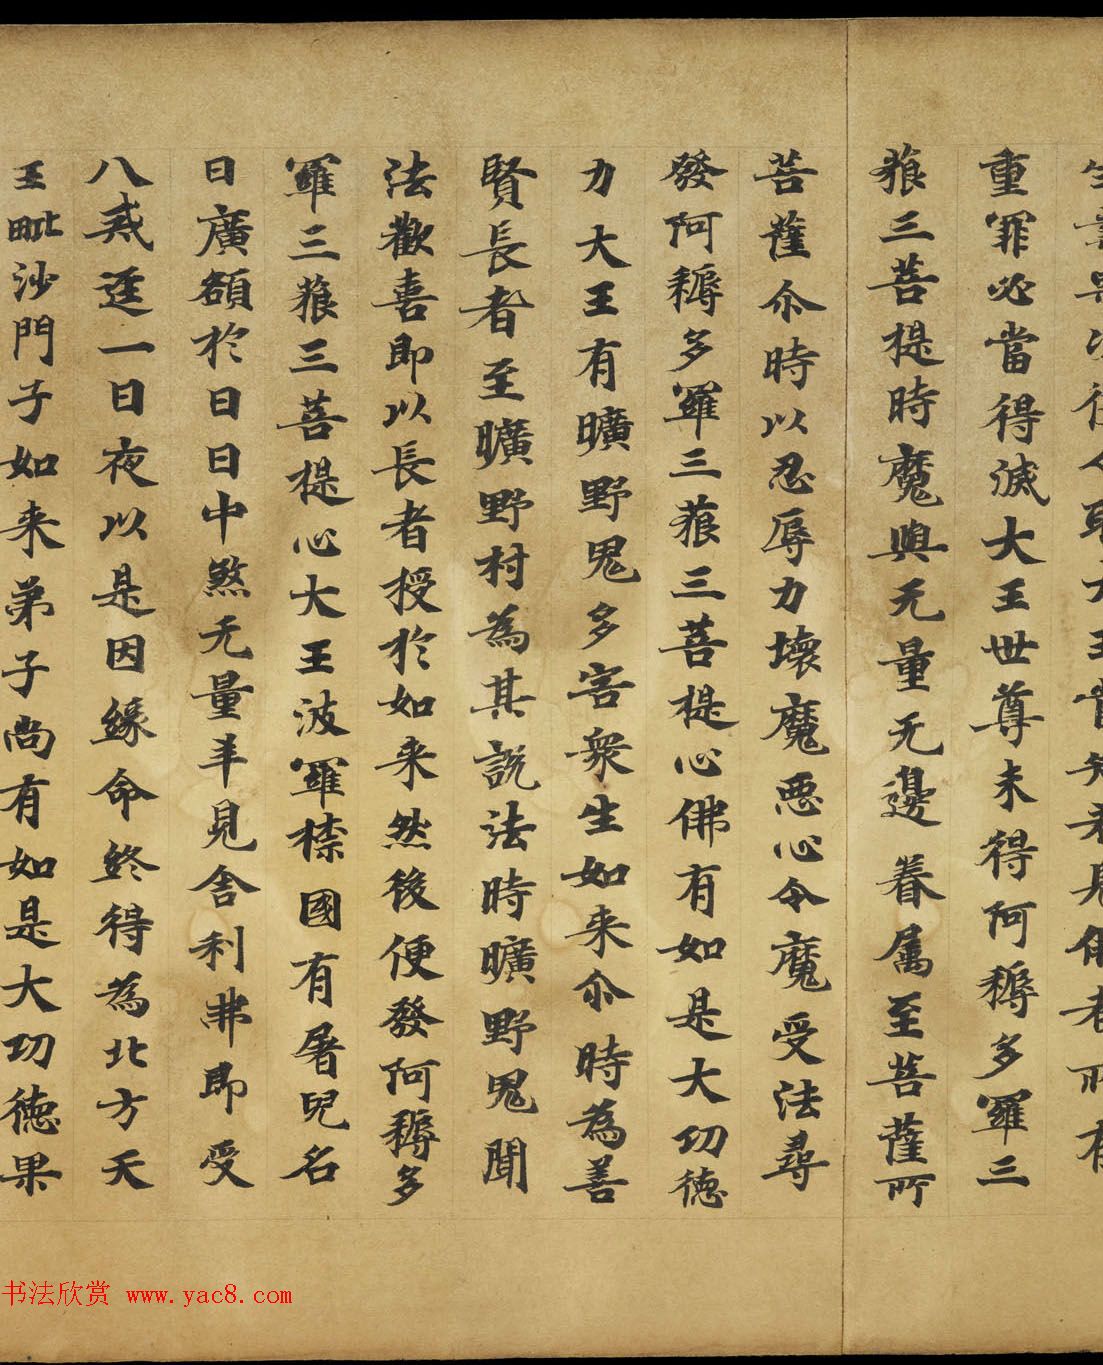 重罪必當得滅大王世尊未得阿耨多羅三
藐三菩提時魔與无量无邊眷屬至菩薩所
菩薩尒時以忍辱力壞魔惡心令魔受法尋
發阿耨多羅三藐三菩提心佛有如是大功德
力大王有曠野鬼多害衆生如来尒時為善
賢長者至曠野村為其説法時曠野鬼聞
法歡喜即以長者授於如来然後便發阿耨多
羅三藐三菩提心大王波羅㮈國有屠兒名
曰廣額於日日中煞无量羊見舍利弗即受
八戒逕一日夜以是因緣命終得為北方天
王毗沙門子如来弟子尚有如是大功德果
书法欣赏 www.yac8.com